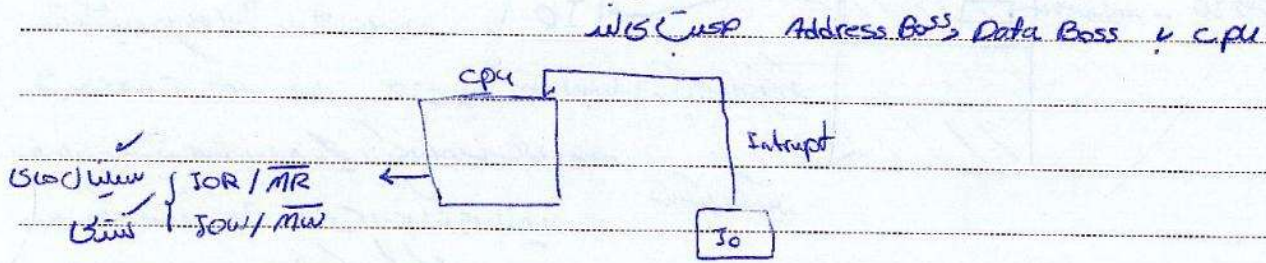 CPU با Data Boss و Address Boss صحبت می‌کند
CPU
Intrupt
سیگنال های { IOR / M̅R̅
کنترلی { IOW / M̅W̅
IO